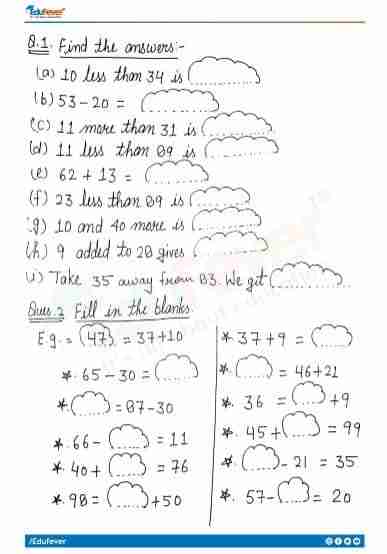 Edufever
Q.1. Find the answers:-
(a) 10 less than 34 is
(b) 53-20 =
(c) 11 more than 31 is
(d) 11 less than 89 is
(e) 62 + 13 =
(f) 23 less than 89 is
(g) 10 and 40 more is
(h) 9 added to 28 gives
(i) Take 35 away from 83. We get
Ques.2 Fill in the blanks.
E.g. = (47) = 37+10
*. 65-30 =
*. = 87-30
*. 66- = 11
*. 40+ = 76
*. 98= +50
*. 37+9 =
*. = 46+21
*. 36 = +9
*. 45+ = 99
*. - 21 = 35
*. 57- = 20
/Edufever